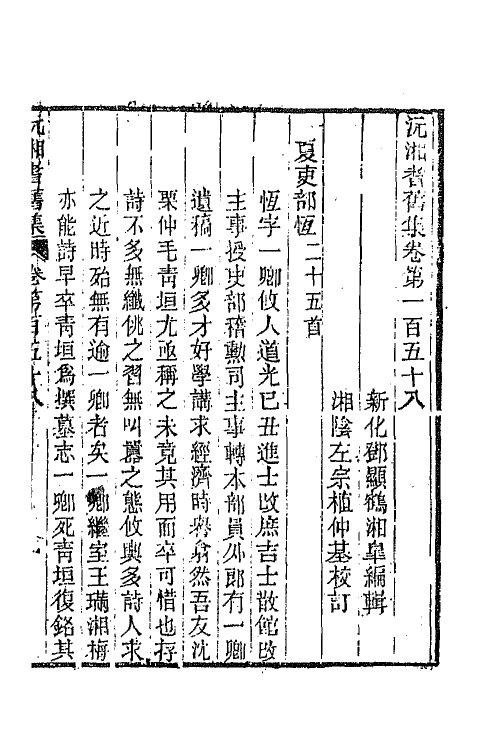 沅湘耆舊集卷第一百五十八
新化鄧顯鶴湘皐編輯
湘陰左宗植仲基校訂
夏吏部恆二十五首
恆字一卿攸人道光己丑進士改庶吉士散館改
主事授吏部稽勳司主事轉本部員外郎有一卿
遺稿一卿多才好學講求經濟時譽翕然吾友沈
栗仲毛靑垣尤亟稱之未竟其用而卒可惜也存
詩不多無纖佻之習無叫囂之態攸輿多詩人求
之近時殆無有逾一卿者矣一卿繼室王璊湘梅
亦能詩早卒靑垣爲撰墓志一卿死靑垣復銘其
沅湘耆舊集 卷第百五十八 一